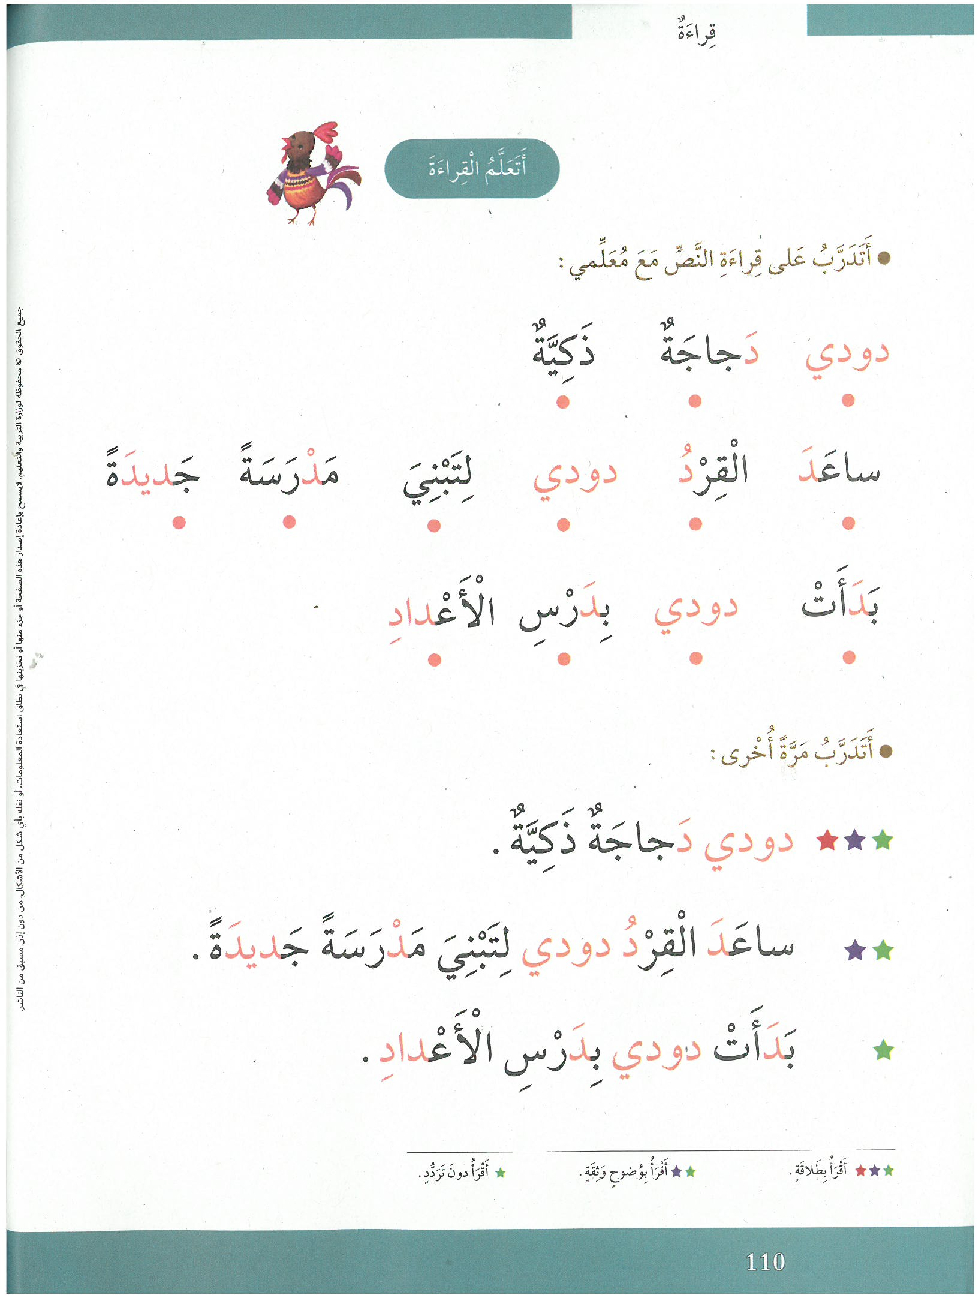 قِراءَةٌ
أَتَعَلَّمُ الْقِراءَةَ
● أَتَدَرَّبُ عَلى قِراءَةِ النَّصِّ مَعَ مُعَلِّمي :
دودي دَجاجَةٌ ذَكِيَّةٌ
ساعَدَ الْقِرْدُ دودي لِتَبْنِيَ مَدْرَسَةً جَديدَةً
بَدَأَتْ دودي بِدَرْسِ الْأَعْدادِ
● أَتَدَرَّبُ مَرَّةً أُخْرى :
دودي دَجاجَةٌ ذَكِيَّةٌ .
ساعَدَ الْقِرْدُ دودي لِتَبْنِيَ مَدْرَسَةً جَديدَةً .
بَدَأَتْ دودي بِدَرْسِ الْأَعْدادِ .
★★★ أَقْرَأُ بِطَلاقَةٍ . ★★ أَقْرَأُ بِوُضوحٍ وَثِقَةٍ . ★ أَقْرَأُ دونَ تَرَدُّدٍ .
110
جميع الحقوق © محفوظة لوزارة التربية والتعليم. لا يسمح بإعادة إصدار هذه الصفحة أو جزء منها أو تخزينها في نطاق استعادة المعلومات، أو نقله بأي شكل من الأشكال، من دون إذن مسبق من الناشر.